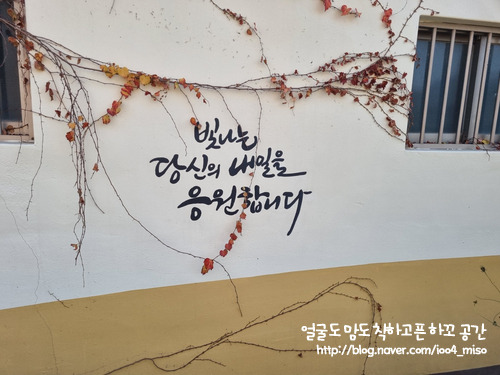 빛나는
당신의 내일을
응원합니다
얼굴도 맘도 착하고픈 하꼬 공간
http://blog.naver.com/ioo4_miso